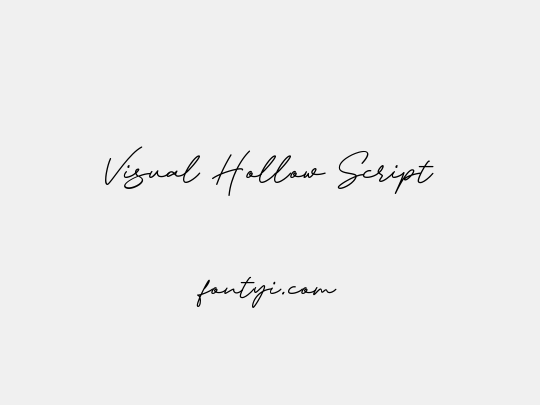 Visual Hollow Script
fontyi.com